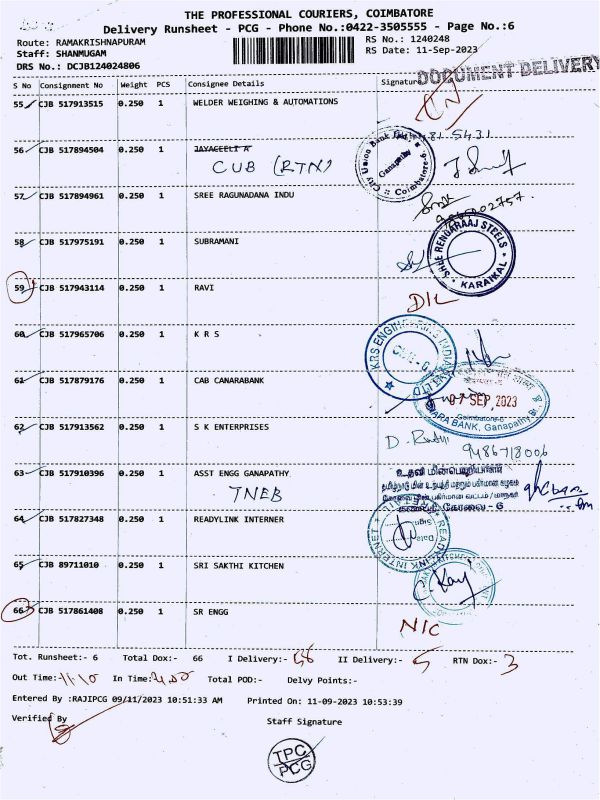 THE PROFESSIONAL COURIERS, COIMBATORE
Delivery Runsheet - PCG - Phone No.:0422-3505555 - Page No.:6
Route: RAMAKRISHNAPURAM
RS No.: 1240248
Staff: SHANMUGAM
RS Date: 11-Sep-2023
DRS No.: DCJB124024806
DOCUMENT DELIVERY
S No Consignment No Weight PCS Consignee Details Signature
55 CJB 517913515 0.250 1 WELDER WEIGHING & AUTOMATIONS
56 CJB 517894504 0.250 1 JAYAGEELI K
CUB (RTN)
City Union Bank
Ganapathy
Coimbatore-6
81 5431
57 CJB 517894961 0.250 1 SREE RAGUNADANA INDU
58 CJB 517975191 0.250 1 SUBRAMANI
SHREE RENGARAAJ STEELS
KARAIKAL
59 CJB 517943114 0.250 1 RAVI
D/L
60 CJB 517965706 0.250 1 K R S
KRS ENGINEERING INDIA PVT LTD
61 CJB 517879176 0.250 1 CAB CANARABANK
07 SEP 2023
Coimbatore-6
CANARA BANK, Ganapathy Br.
62 CJB 517913562 0.250 1 S K ENTERPRISES
9486718006
63 CJB 517910396 0.250 1 ASST ENGG GANAPATHY
TNEB
உதவி மின்பொறியாளர்
தமிழ்நாடு மின் உற்பத்தி மற்றும் பகிர்மான கழகம்
கோவை மின் பகிர்மான வட்டம் / மாநகர்
கணபதி கோவை - 6
64 CJB 517827348 0.250 1 READYLINK INTERNER
READYLINK INTERNET
Sign
Date
65 CJB 89711010 0.250 1 SRI SAKTHI KITCHEN
66 CJB 517861408 0.250 1 SR ENGG
N/C
Tot. Runsheet:- 6 Total Dox:- 66 I Delivery:- 58 II Delivery:- 5 RTN Dox:- 3
Out Time:- 11.10 In Time:- 4.00 Total POD:- Delvy Points:-
Entered By :RAJIPCG 09/11/2023 10:51:33 AM Printed On: 11-09-2023 10:53:39
Verified By
Staff Signature
TPC
PCG